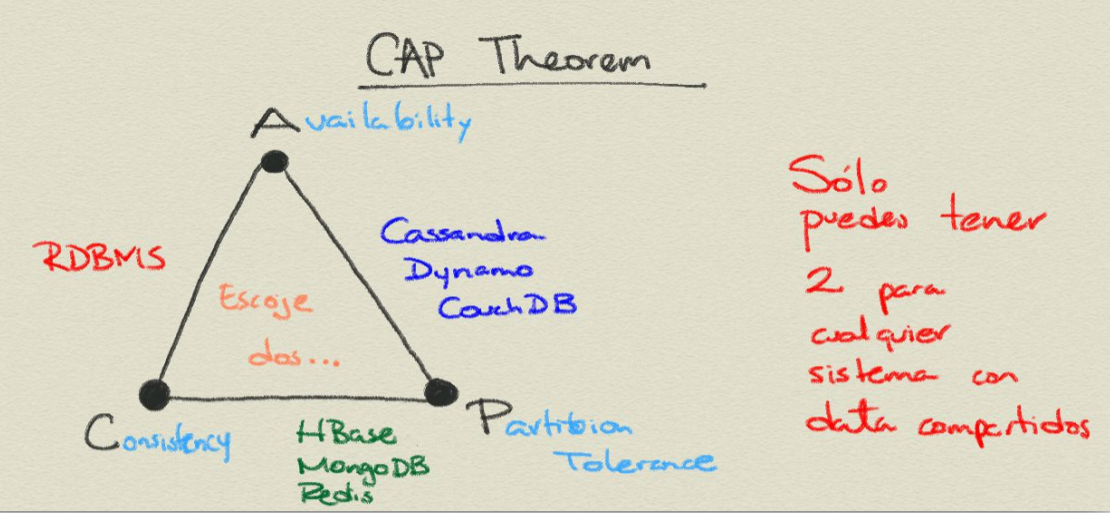 CAP Theorem
Availability
RDBMS
Cassandra
Dynamo
CouchDB
Escoje
dos...
Consistency
HBase
MongoDB
Redis
Partitioion
Tolerance
Sólo
puedes tener
2 para
cualquier
sistema con
data compartidos